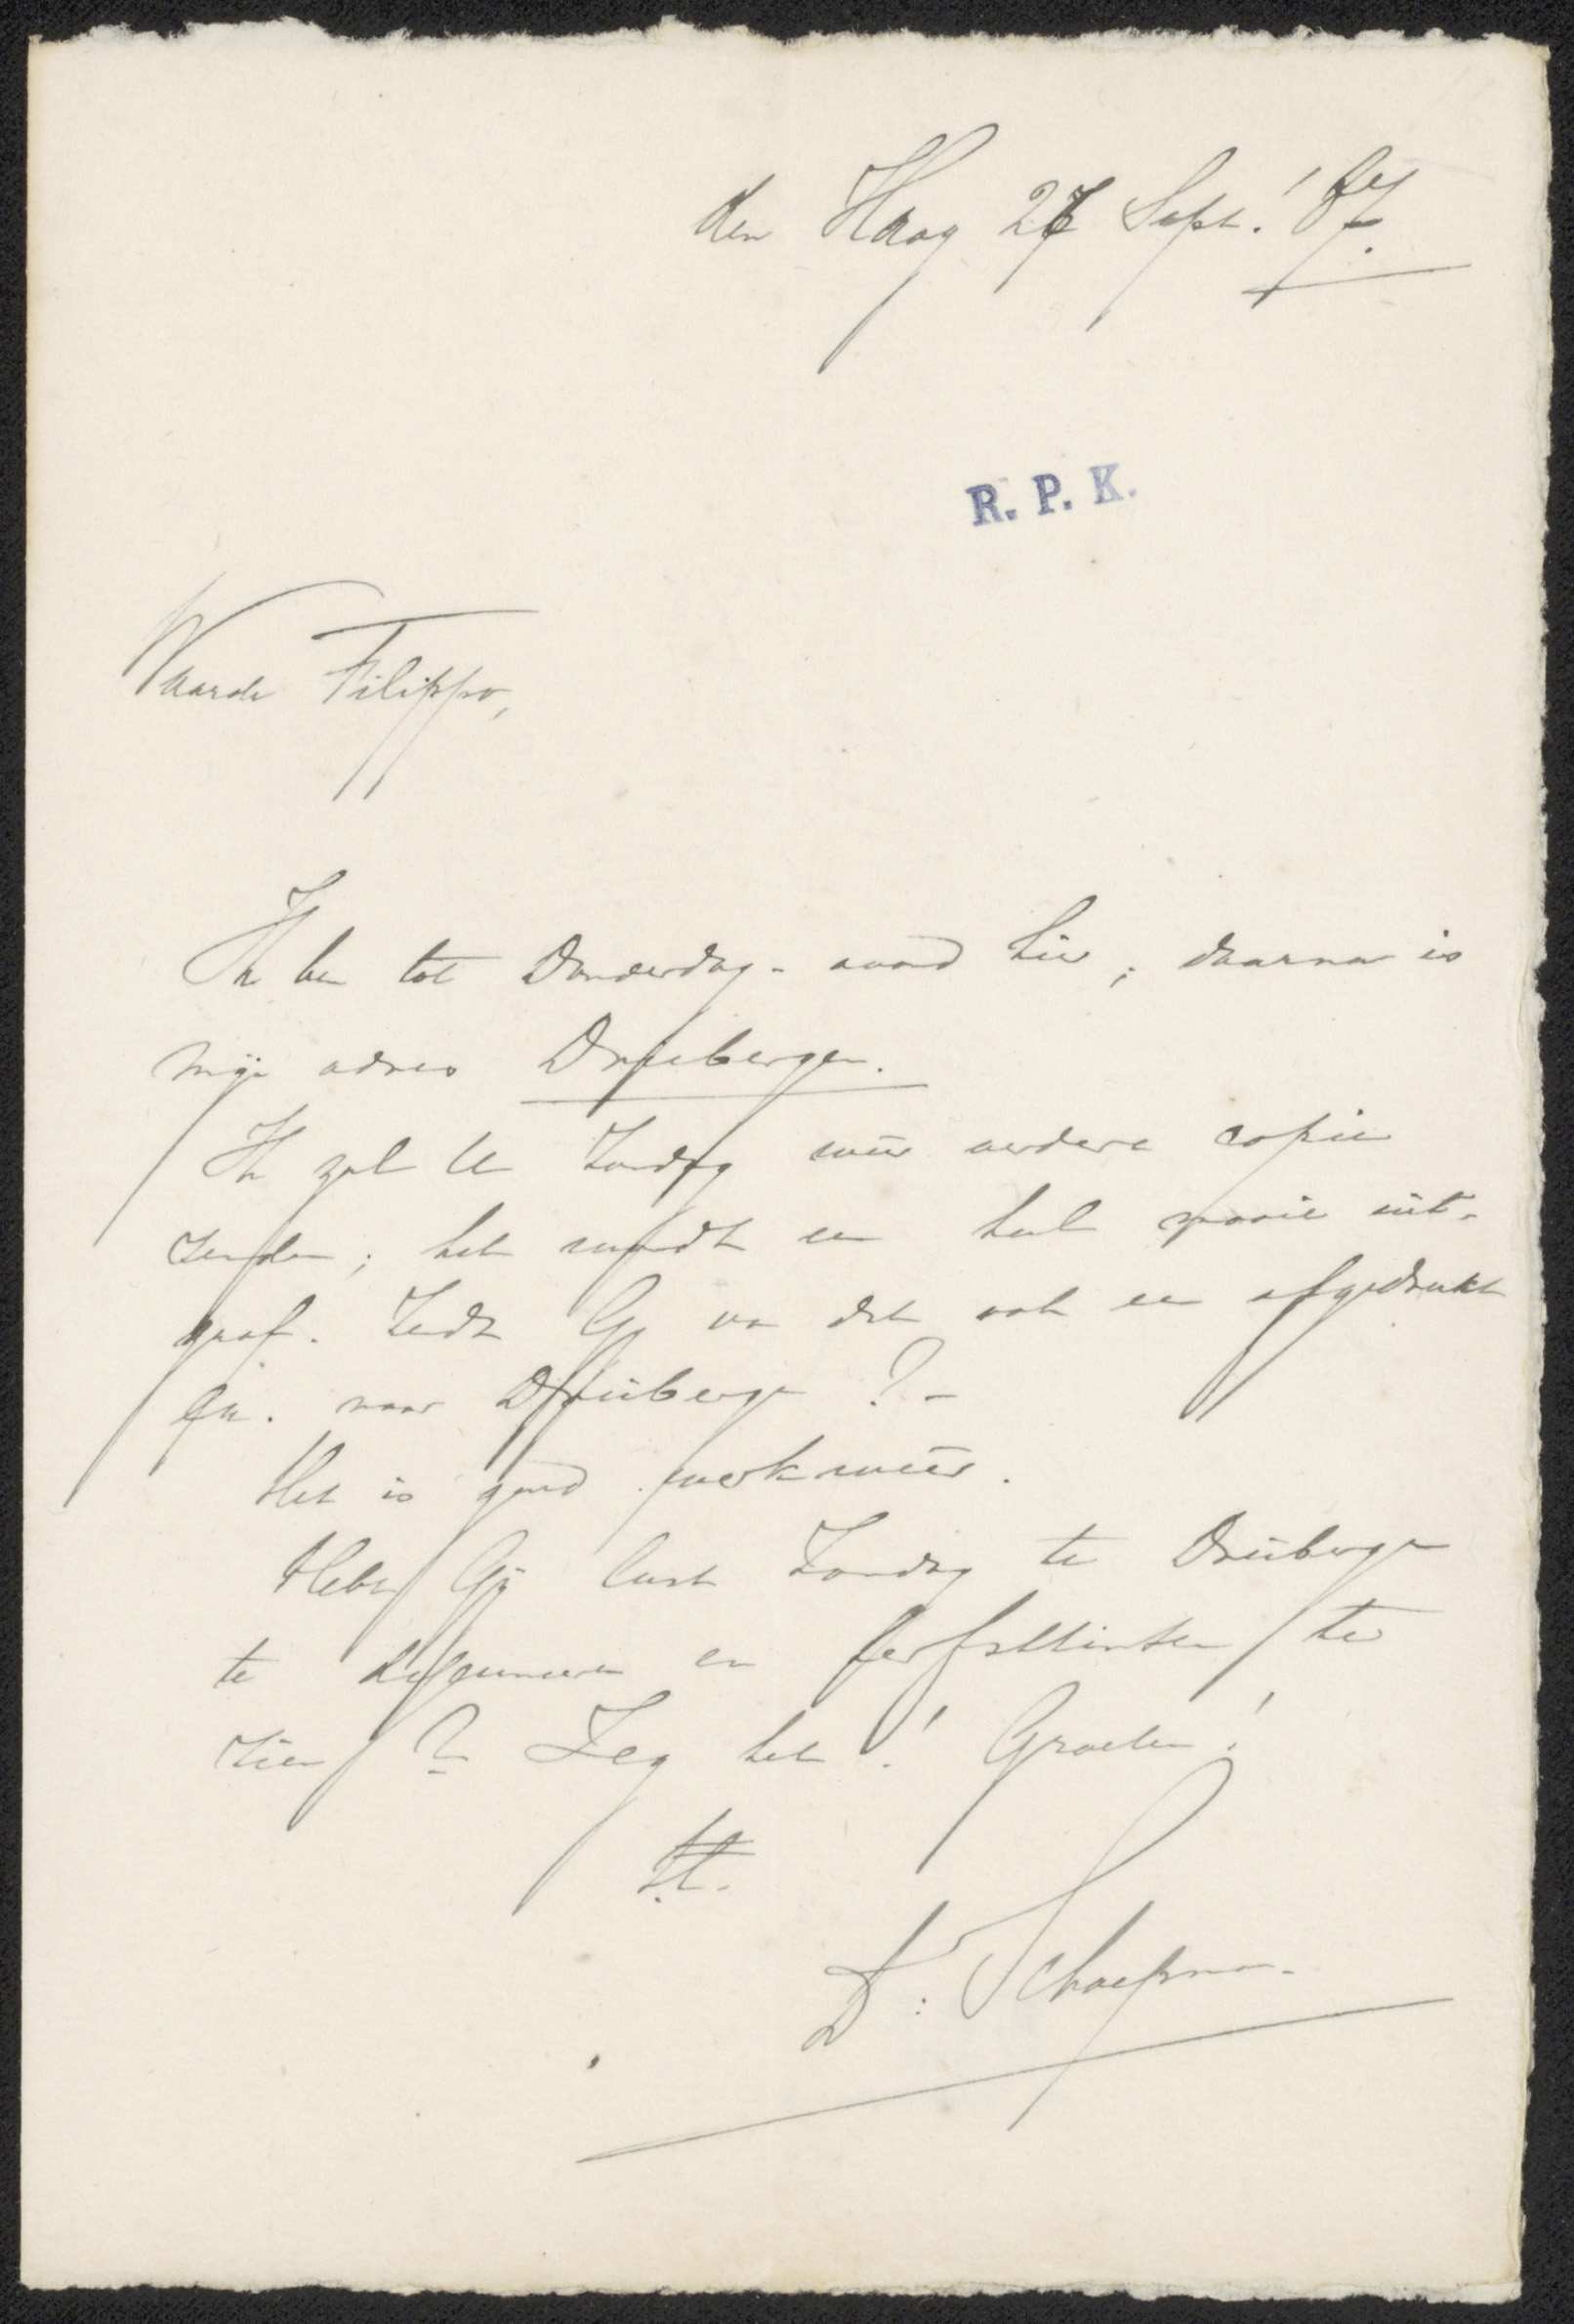 den Haag 27 Sept. '87.
R. P. K.
Waarde Filippo,
Ik ben tot Donderdag-avond hier; daarna is
mijn adres Driebergen.
Ik zal U Zondag weêr verdere copie
zenden; het wordt een heel mooie uit-
graf. Zendt Gij van dit ook een afgedrukt
Ex. naar Driebergen ?-
Het is goed werk weêr.
Hebt Gij lust Zondag te Driebergen
te dejeuneren en te
zien ? Zeg het ! Groeten !
tt.
Dr. Schaepman.